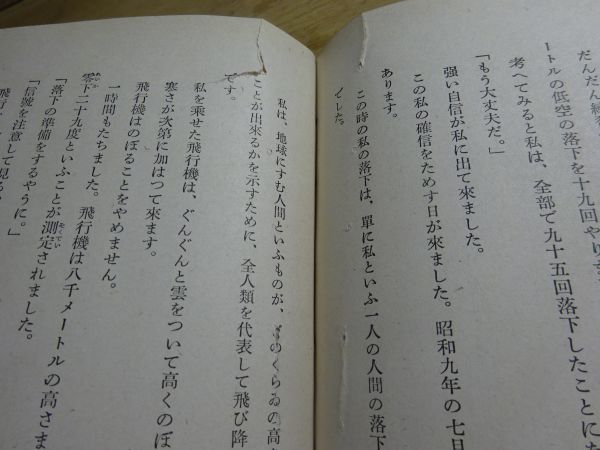 だんだん練
ートルの低空の落下を十九回やり
考へてみると私は、全部で九十五回落下したことに
「もう大丈夫だ。」
強い自信が私に出て來ました。
この私の確信をためす日が來ました。昭和九年の七日
あります。
この時の私の落下は、單に私といふ一人の人間の落下
でした。
私は、地球にすむ人間といふものが、どのくらゐの高
ことが出來るかを示すために、全人類を代表して飛び降
です。
私を乘せた飛行機は、ぐんぐんと雲をついて高くのぼ
寒さが次第に加はつて來ます。
飛行機はのぼることをやめません。
一時間もたちました。
零下二十九度といふことが測定されました。飛行機は八千メートルの高さま
「落下の準備をするやうに。」
「信號を注意して見る
飛行